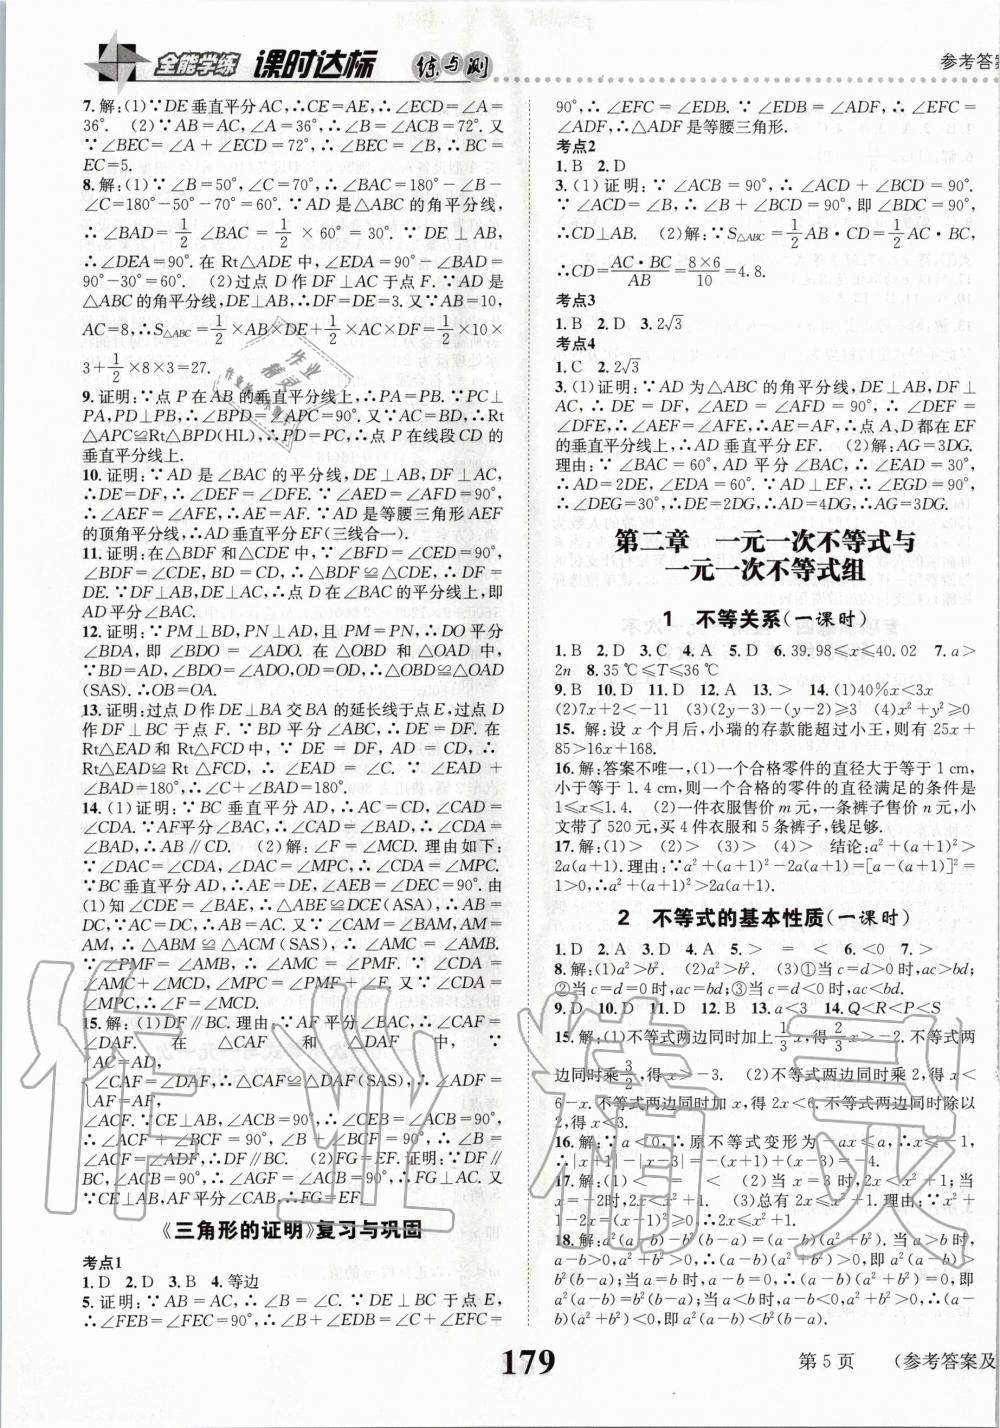 全能学练 课时达标 练与测
参考答案
7.解:(1)∵DE垂直平分AC,∴CE=AE,∴∠ECD=∠A=
36°. (2)∵AB=AC,∠A=36°,∴∠B=∠ACB=72°.又
∵∠BEC=∠A+∠ECD=72°,∴∠BEC=∠B,∴BC=
EC=5.
8.解:(1)∵∠B=50°,∠C=70°,∴∠BAC=180°-∠B-
∠C=180°-50°-70°=60°.∵AD是△ABC的角平分线,
∴∠BAD=1/2∠BAC=1/2×60°=30°.∵DE⊥AB,
∴∠DEA=90°.在Rt△ADE中,∠EDA=90°-∠BAD=
90°-30°=60°. (2)过点D作DF⊥AC于点F.∵AD是
△ABC的角平分线,DE⊥AB,∴DF=DE=3.又∵AB=10,
AC=8,∴S△ABC=1/2×AB×DE+1/2×AC×DF=1/2×10×
3+1/2×8×3=27.
9.证明:∵点P在AB的垂直平分线上,∴PA=PB.∵PC⊥
PA,PD⊥PB,∴∠BPD=∠APC=90°.又∵AC=BD,∴Rt
△APC≌Rt△BPD(HL),∴PD=PC,∴点P在线段CD的
垂直平分线上.
10.证明:∵AD是∠BAC的平分线,DE⊥AB,DF⊥AC,
∴DE=DF,∴∠DEF=∠DFE.∵∠AED=∠AFD=90°,
∴∠AEF=∠AFE,∴AE=AF.∵AD是等腰三角形AEF
的顶角平分线,∴AD垂直平分EF(三线合一).
11.证明:在△BDF和△CDE中,∵∠BFD=∠CED=90°,
∠BDF=∠CDE,BD=CD,∴△BDF≌△CDE,∴DF=
DE.∵DF⊥AB,DE⊥AC,∴点D在∠BAC的平分线上,即
AD平分∠BAC.
12.证明:∵PM⊥BD,PN⊥AD,且PM=PN,∴OP平分
∠BDA,即∠BDO=∠ADO.在△OBD和△OAD中,
∵BD=AD,∠BDO=∠ADO,OD=OD,∴△OBD≌△OAD
(SAS).∴OB=OA.
13.证明:过点D作DE⊥BA交BA的延长线于点E,过点D
作DF⊥BC于点F.∵BD平分∠ABC,∴DE=DF.在
Rt△EAD和Rt△FCD中,∵DE=DF,AD=CD,∴
Rt△EAD≌Rt△FCD,∴∠EAD=∠C.∵∠EAD+
∠BAD=180°,∴∠C+∠BAD=180°.
14.(1)证明:∵BC垂直平分AD,∴AC=CD,∴∠CAD=
∠CDA.∵AF平分∠BAC,∴∠CAD=∠BAD,∴∠CDA=
∠BAD,∴AB∥CD. (2)解:∠F=∠MCD.理由如下:
∵∠DAC=∠CDA,∠DAC=∠MPC,∴∠CDA=∠MPC.
∵BC垂直平分AD,∴AE=DE,∠AEB=∠DEC=90°.由
(1)知∠CDE=∠BAE,∴△ABE≌DCE(ASA),∴AB=
DC,∵AC=DC,∴AB=AC.又∵∠CAM=∠BAM,AM=
AM,∴△ABM≌△ACM(SAS),∴∠AMC=∠AMB.
∵∠PMF=∠AMB,∴∠AMC=∠PMF.∵∠CDA=
∠AMC+∠MCD,∠MPC=∠PMF+∠F.又∵∠CDA=
∠MPC,∴∠F=∠MCD.
15.解:(1)DF∥BC.理由:∵AF平分∠BAC,∴∠CAF=
∠DAF.在△CAF和△DAF中,∵
AC=AD,
∠CAF=∠DAF,∴△CAF≌△DAF(SAS),∴∠ADF=
AF=AF,
∠ACF.∵CE⊥AB,∠ACB=90°,∴∠CEB=∠ACB=
∠ACF+∠BCF=90°,∠B+∠BCF=90°,∴∠B=
∠ACF=∠ADF,∴DF∥BC. (2)FG=EF.证明:∵DF∥
BC,∠ACB=90°,∴∠AGF=∠ACB=90°,∴FG⊥AC.又
∵CE⊥AB,AF平分∠CAB,∴FG=EF.
《三角形的证明》复习与巩固
考点1
1.D 2.D 3.B 4.等边
5.证明:∵AB=AC,∴∠B=∠C.∵DE⊥BC于点E,
∴∠FEB=∠FEC=90°,∴∠B+∠EDB=∠C+∠EFC=
90°,∴∠EFC=∠EDB.∵∠EDB=∠ADF,∴∠EFC=
∠ADF,∴△ADF是等腰三角形.
考点2
1.B 2.D
3.(1)证明:∵∠ACB=90°,∴∠ACD+∠BCD=90°.
∵∠ACD=∠B,∴∠B+∠BCD=90°,即∠BDC=90°,
∴CD⊥AB. (2)解:∵S△ABC=1/2AB·CD=1/2AC·BC,
∴CD=AC·BC/AB=8×6/10=4.8.
考点3
1.B 2.D 3.2√3
考点4
1.C 2.2√3
3.(1)证明:∵AD为△ABC的角平分线,DE⊥AB,DF⊥
AC,∴DE=DF,∠AED=∠AFD=90°,∴∠DEF=
∠DFE,∴∠AEF=∠AFE,∴AE=AF,∴点A、D都在EF
的垂直平分线上,∴AD垂直平分EF. (2)解:AG=3DG.
理由:∵∠BAC=60°,AD平分∠BAC,∴∠EAD=30°,
∴AD=2DE,∠EDA=60°.∵AD⊥EF,∴∠EGD=90°,
∴∠DEG=30°,∴DE=2DG,∴AD=4DG,∴AG=3DG.
第二章 一元一次不等式与
一元一次不等式组
1 不等关系(一课时)
1.B 2.D 3.C 4.A 5.D 6.39.98≤x≤40.02 7.a>
2n 8.35℃≤T≤36℃
9.B 10.D 11.D 12.A 13.> 14.(1)40%x<3x
(2)7x+2<-11 (3)2(x-y)-(y-2)≥3 (4)x²+y²≥0
15.解:设x个月后,小瑞的存款能超过小王,则有25x+
85>16x+168.
16.解:答案不唯一,(1)一个合格零件的直径大于等于1cm,
小于等于1.4cm,则一个合格的零件的直径满足的条件是
1≤x≤1.4. (2)一件衣服售价m元,一条裤子售价n元,小
文带了520元,买4件衣服和5条裤子,钱足够.
17.解:(1)> (2)> (3)> (4)> 结论:a²+(a+1)²>
2a(a+1).理由:∵a²+(a+1)²-2a(a+1)=[a-(a+1)]²=
1>0,∴a²+(a+1)²>2a(a+1).
2 不等式的基本性质(一课时)
1.D 2.A 3.D 4.A 5.> = < 6.<0 7.>
8.解:(1)a²>b². (2)a²>b². (3)①当c=d>0时,ac>bd;
②当c=d=0时,ac=bd;③当c=d<0时,ac<bd.
9.D 10.D 11.D 12.B 13.a<3 14.Q<R<P<S
15.解:(1)不等式两边同时加上1/3x,得2/3x>-2.不等式两
边同时乘3/2,得x>-3. (2)不等式两边同时乘2,得x<
6-x.不等式两边同时加x,得2x<6.不等式两边同时除以
2,得x<3.
16.解:∵a<0,∴原不等式变形为-ax≤a,∴x≤-1,
∴|x+1|-|x-3|=-(x+1)+(x-3)=-4.
17.解:(1)< = < (2)当x=3时,2x<x²+1;当
x=-2时,2x<x²+1. (3)总有2x≤x²+1.理由:∵x²+
1-2x=(x-1)²≥0,∴2x≤x²+1.
18.解:a²(a-b)-b²(a-b)=(a-b)(a²-b²).当a>b时,
a-b>0,a²+b²>0,∴(a-b)(a²+b²)>0,即a²(a-b)>
b²(b-a);当a=b时,a-b=0,∴(a-b)(a²+b²)=0,即
a²(a-b)=b²(b-a);当a<b时,a-b<0,a²+b²>0,∴(a-
b)(a²+b²)<0,即a²(a-b)<b²(b-a).
179
第5页 (参考答案及
作业精灵